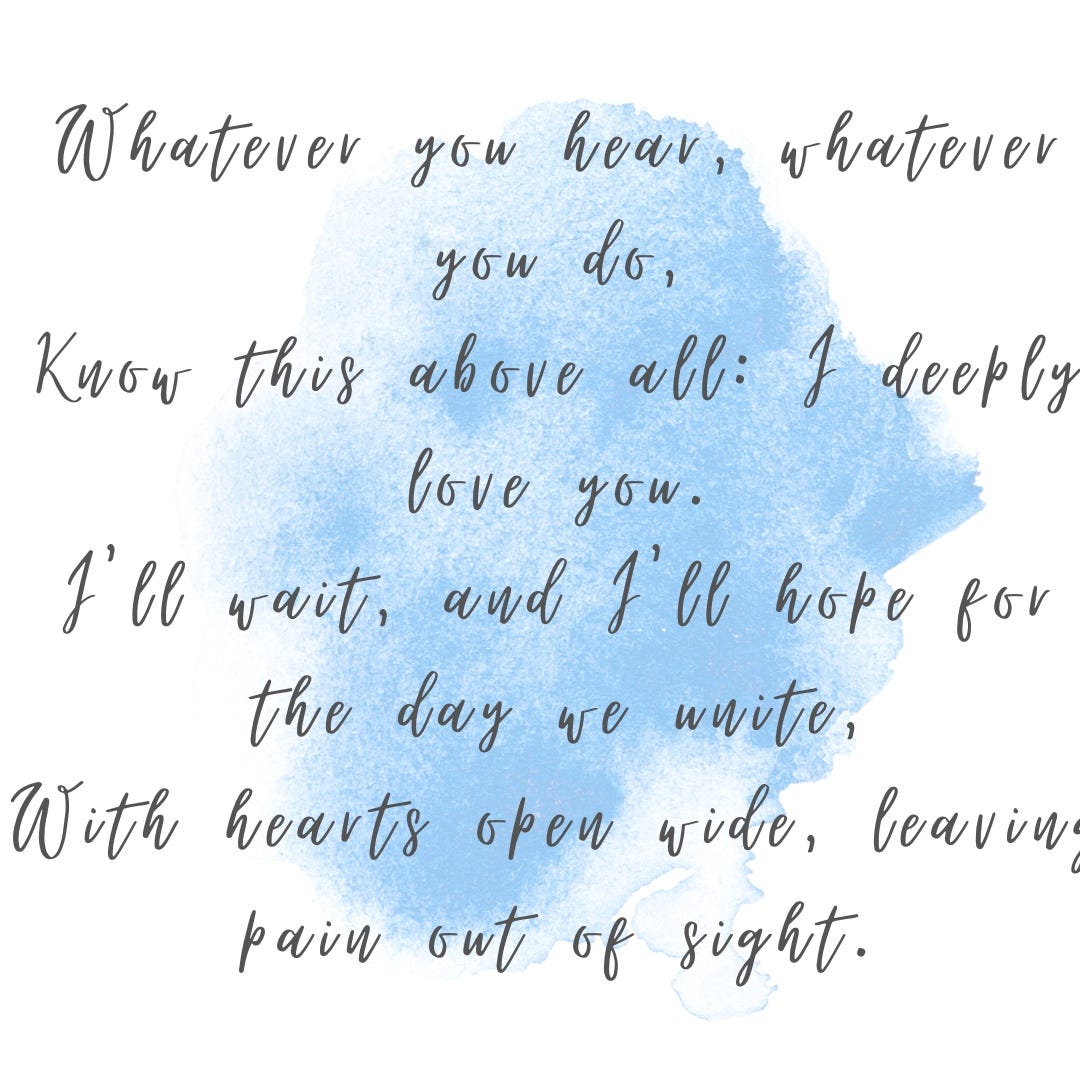 Whatever you hear, whatever
you do,
Know this above all: I deeply
love you.
I'll wait, and I'll hope for
the day we unite,
With hearts open wide, leaving
pain out of sight.